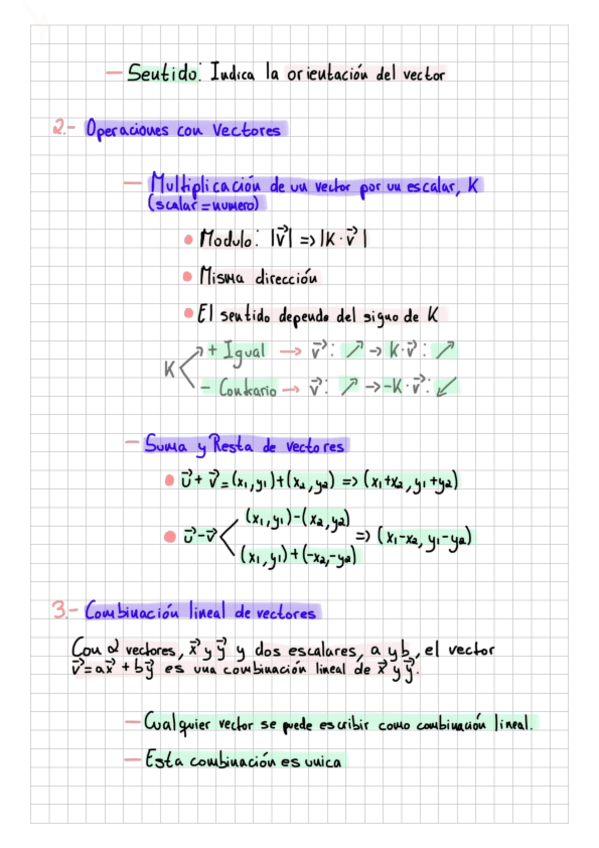 — Sentido: Indica la orientación del vector
2.- Operaciones con Vectores
— Multiplicación de un vector por un escalar, K
(scalar = numero)
• Modulo: |v⃗| => |K · v⃗|
• Misma dirección
• El sentido depende del signo de K
K
+ Igual → v⃗: ↗ → K·v⃗: ↗
- Contrario → v⃗: ↗ → -K·v⃗: ↙
— Suma y Resta de vectores
• u⃗ + v⃗ = (x₁,y₁)+(x₂,y₂) => (x₁+x₂,y₁+y₂)
• u⃗ - v⃗
(x₁,y₁)-(x₂,y₂)
(x₁,y₁)+(-x₂,-y₂)
=> (x₁-x₂,y₁-y₂)
3.- Combinación lineal de vectores
Con 2 vectores, x⃗ y y⃗ y dos escalares, a y b, el vector
v⃗ = ax⃗ + by⃗ es una combinación lineal de x⃗ y y⃗.
— Cualquier vector se puede escribir como combinación lineal.
— Esta combinación es unica